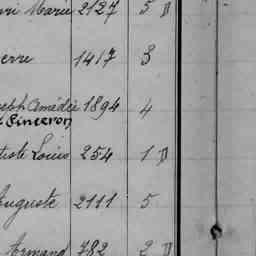 nri Marie 2127 5 D
erre 1417 3
seph Amédée 1894 4
Sinceron
tiste Louis 254 1 D
Auguste 2111 5
Armand 782 2 D